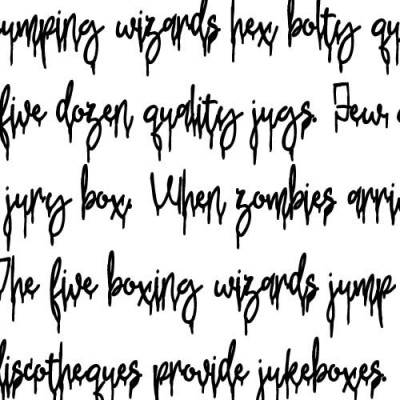 umping wizards hex bolty qu
five dozen quality jugs. Few
jury box. When zombies arri
The five boxing wizards jump
discotheques provide jukeboxes.